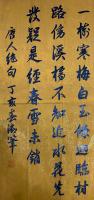 一樹寒梅白玉條迥臨村
路傍溪橋不知近水花先
發疑是經春雪未銷
唐人絕句 丁亥